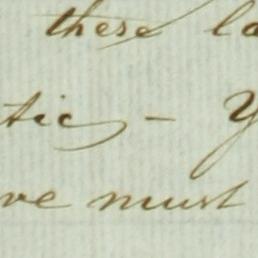 these la
tic - Y
ve must